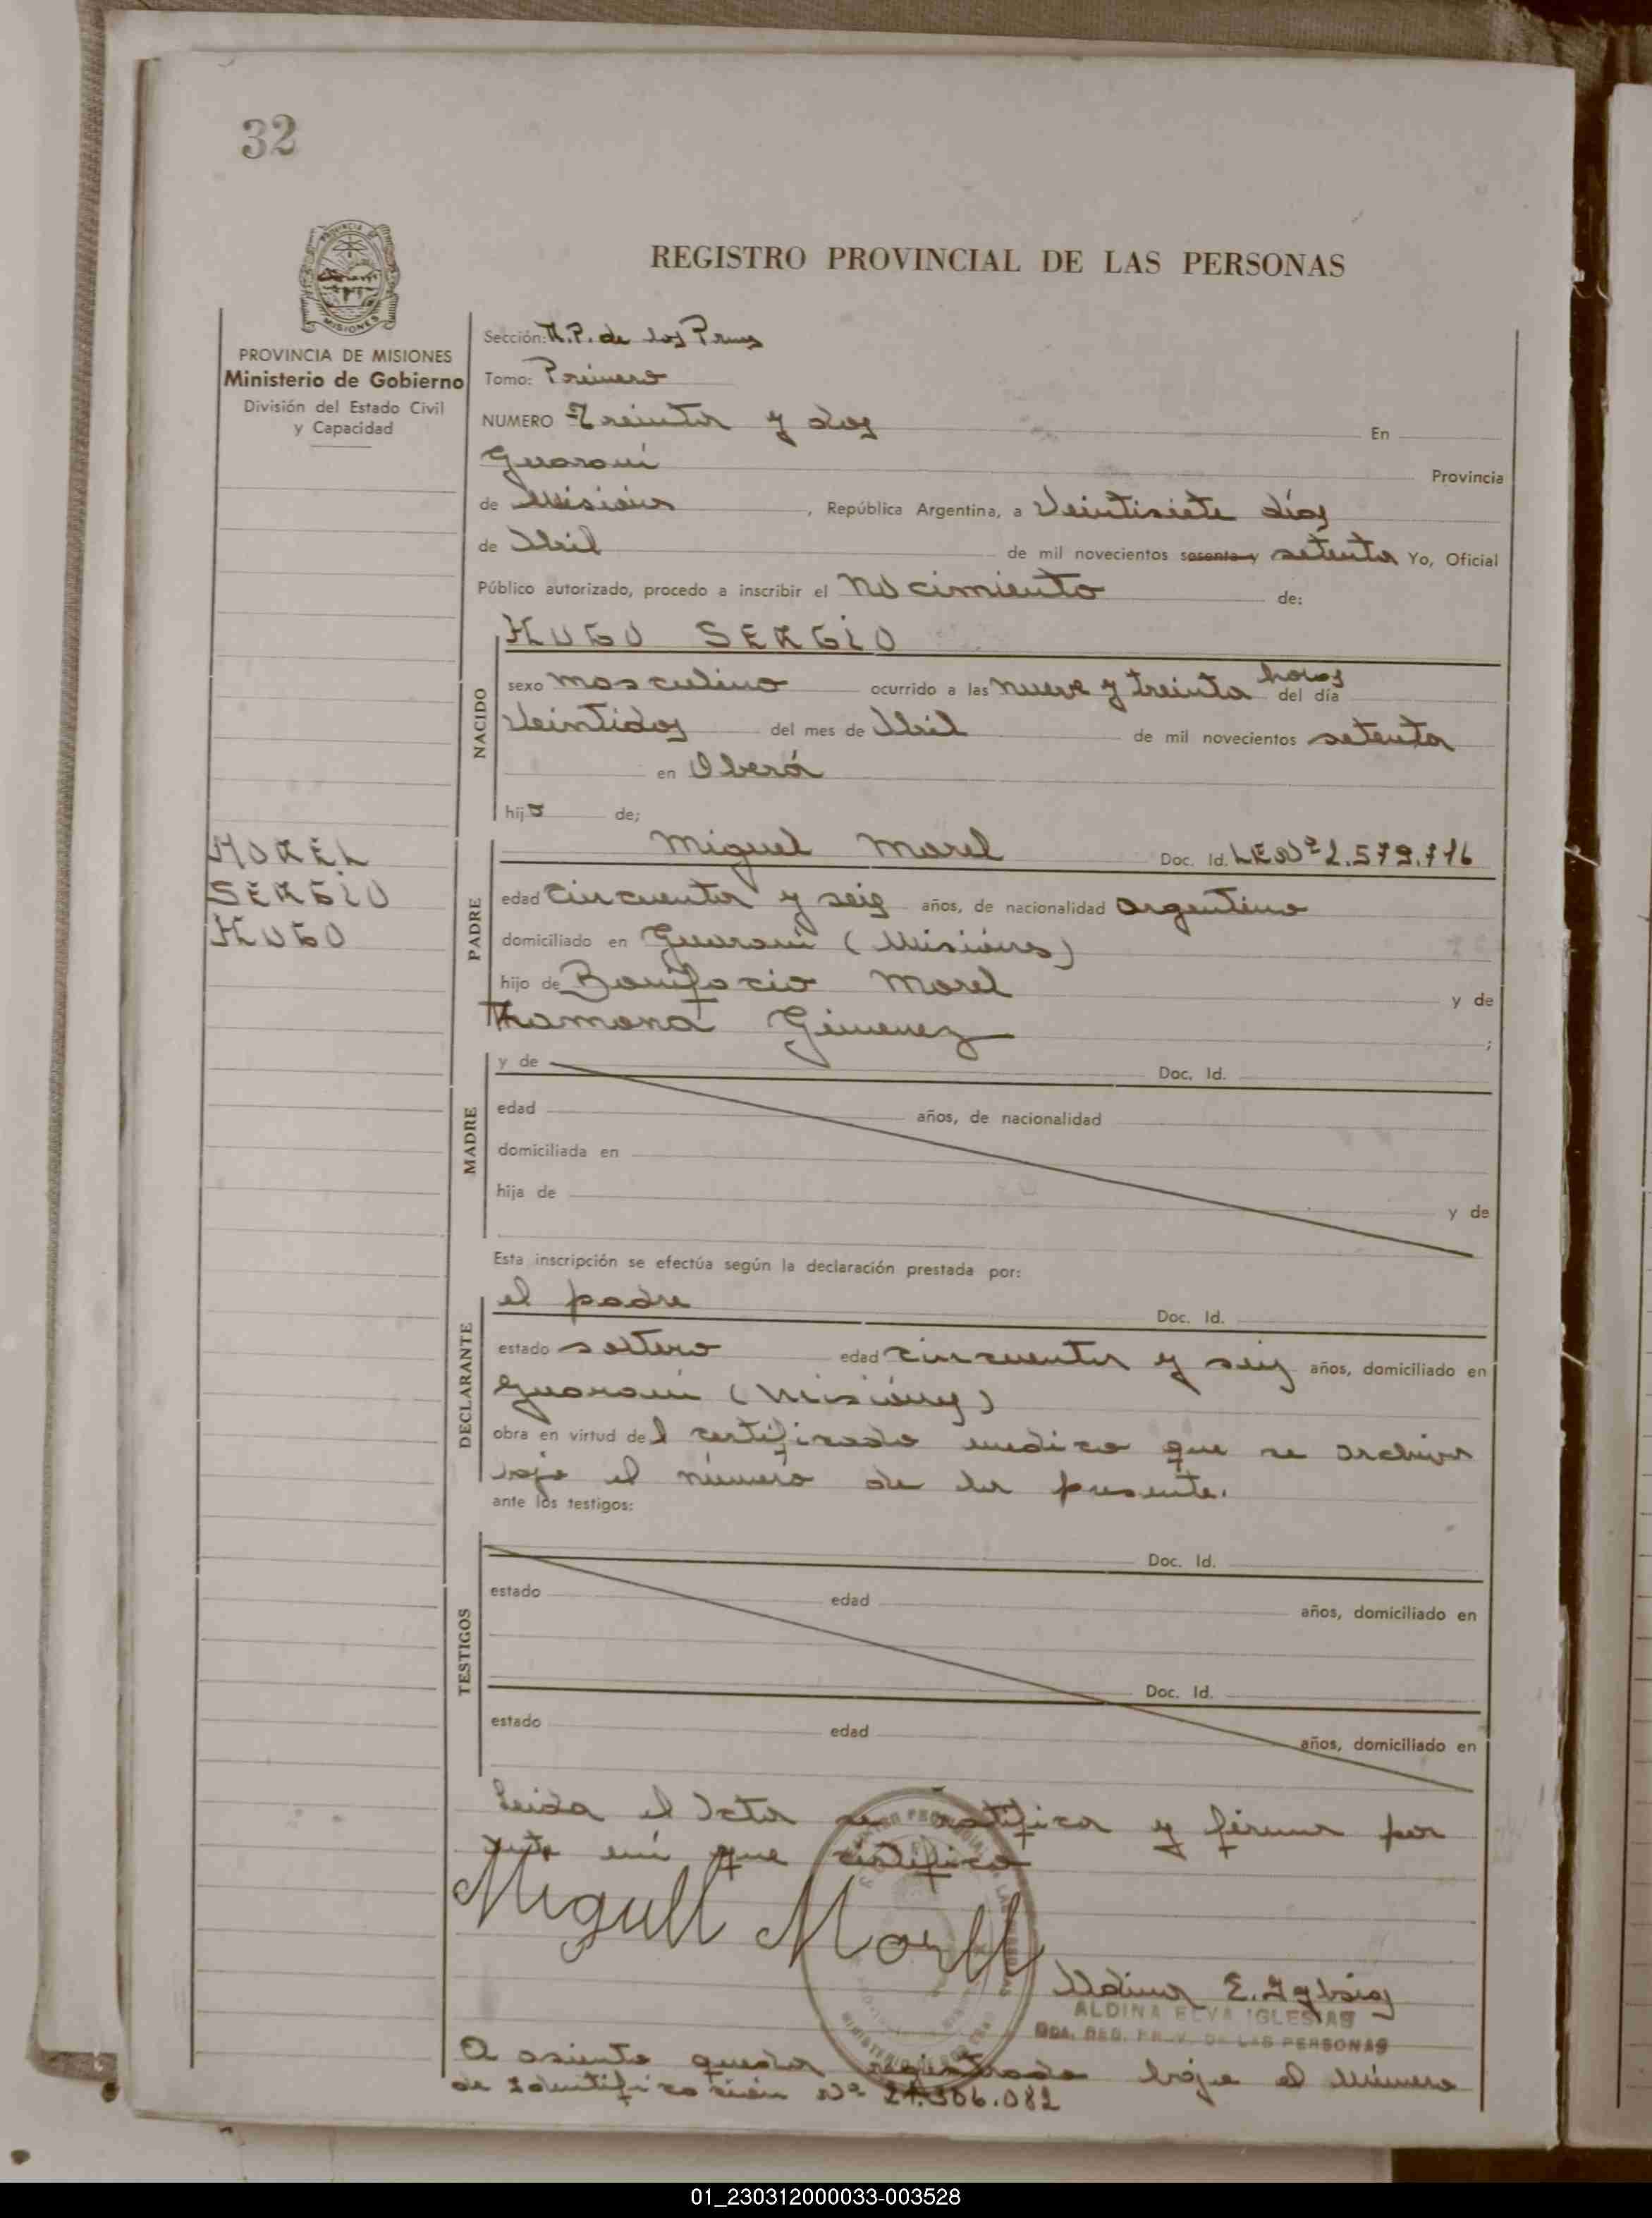 32
REGISTRO PROVINCIAL DE LAS PERSONAS
PROVINCIA DE MISIONES
Ministerio de Gobierno
División del Estado Civil
y Capacidad
Sección: R.P. de las Pnas
Tomo: Primero
NUMERO Treinta y dos En
Guaraní Provincia
de Misiones, República Argentina, a Veintisiete días
de Abril de mil novecientos sesenta y setenta Yo, Oficial
Público autorizado, procedo a inscribir el Nacimiento de:
HUGO SERGIO
NACIDO
sexo masculino ocurrido a las nueve y treinta horas del día
Veintidos del mes de Abril de mil novecientos setenta
en Oberá
hijo de;
MOREL
SERGIO
HUGO
PADRE
Miguel Morel Doc. Id. LE Nº 2.579.716
edad cincuenta y seis años, de nacionalidad argentino
domiciliado en Guaraní (Misiones)
hijo de Bonifacio Morel y de
Ramona Gimenez ;
MADRE
y de Doc. Id.
edad años, de nacionalidad
domiciliada en
hija de y de
Esta inscripción se efectúa según la declaración prestada por:
DECLARANTE
el padre Doc. Id.
estado soltero edad cincuenta y seis años, domiciliado en
Guaraní (Misiones)
obra en virtud del certificado medico que se archiva
bajo el número de la presente.
ante los testigos:
TESTIGOS
Doc. Id.
estado edad años, domiciliado en
Doc. Id.
estado edad años, domiciliado en
Leida el Acta se ratifica y firma por
ante mí que certifico
Miguell Morell
Aldina E. Iglesias
ALDINA ELVA IGLESIAS
LAS PERSONAS
A asiento queda registrado bajo el número
de Identificación Nº 21.306.082
01_230312000033-003528